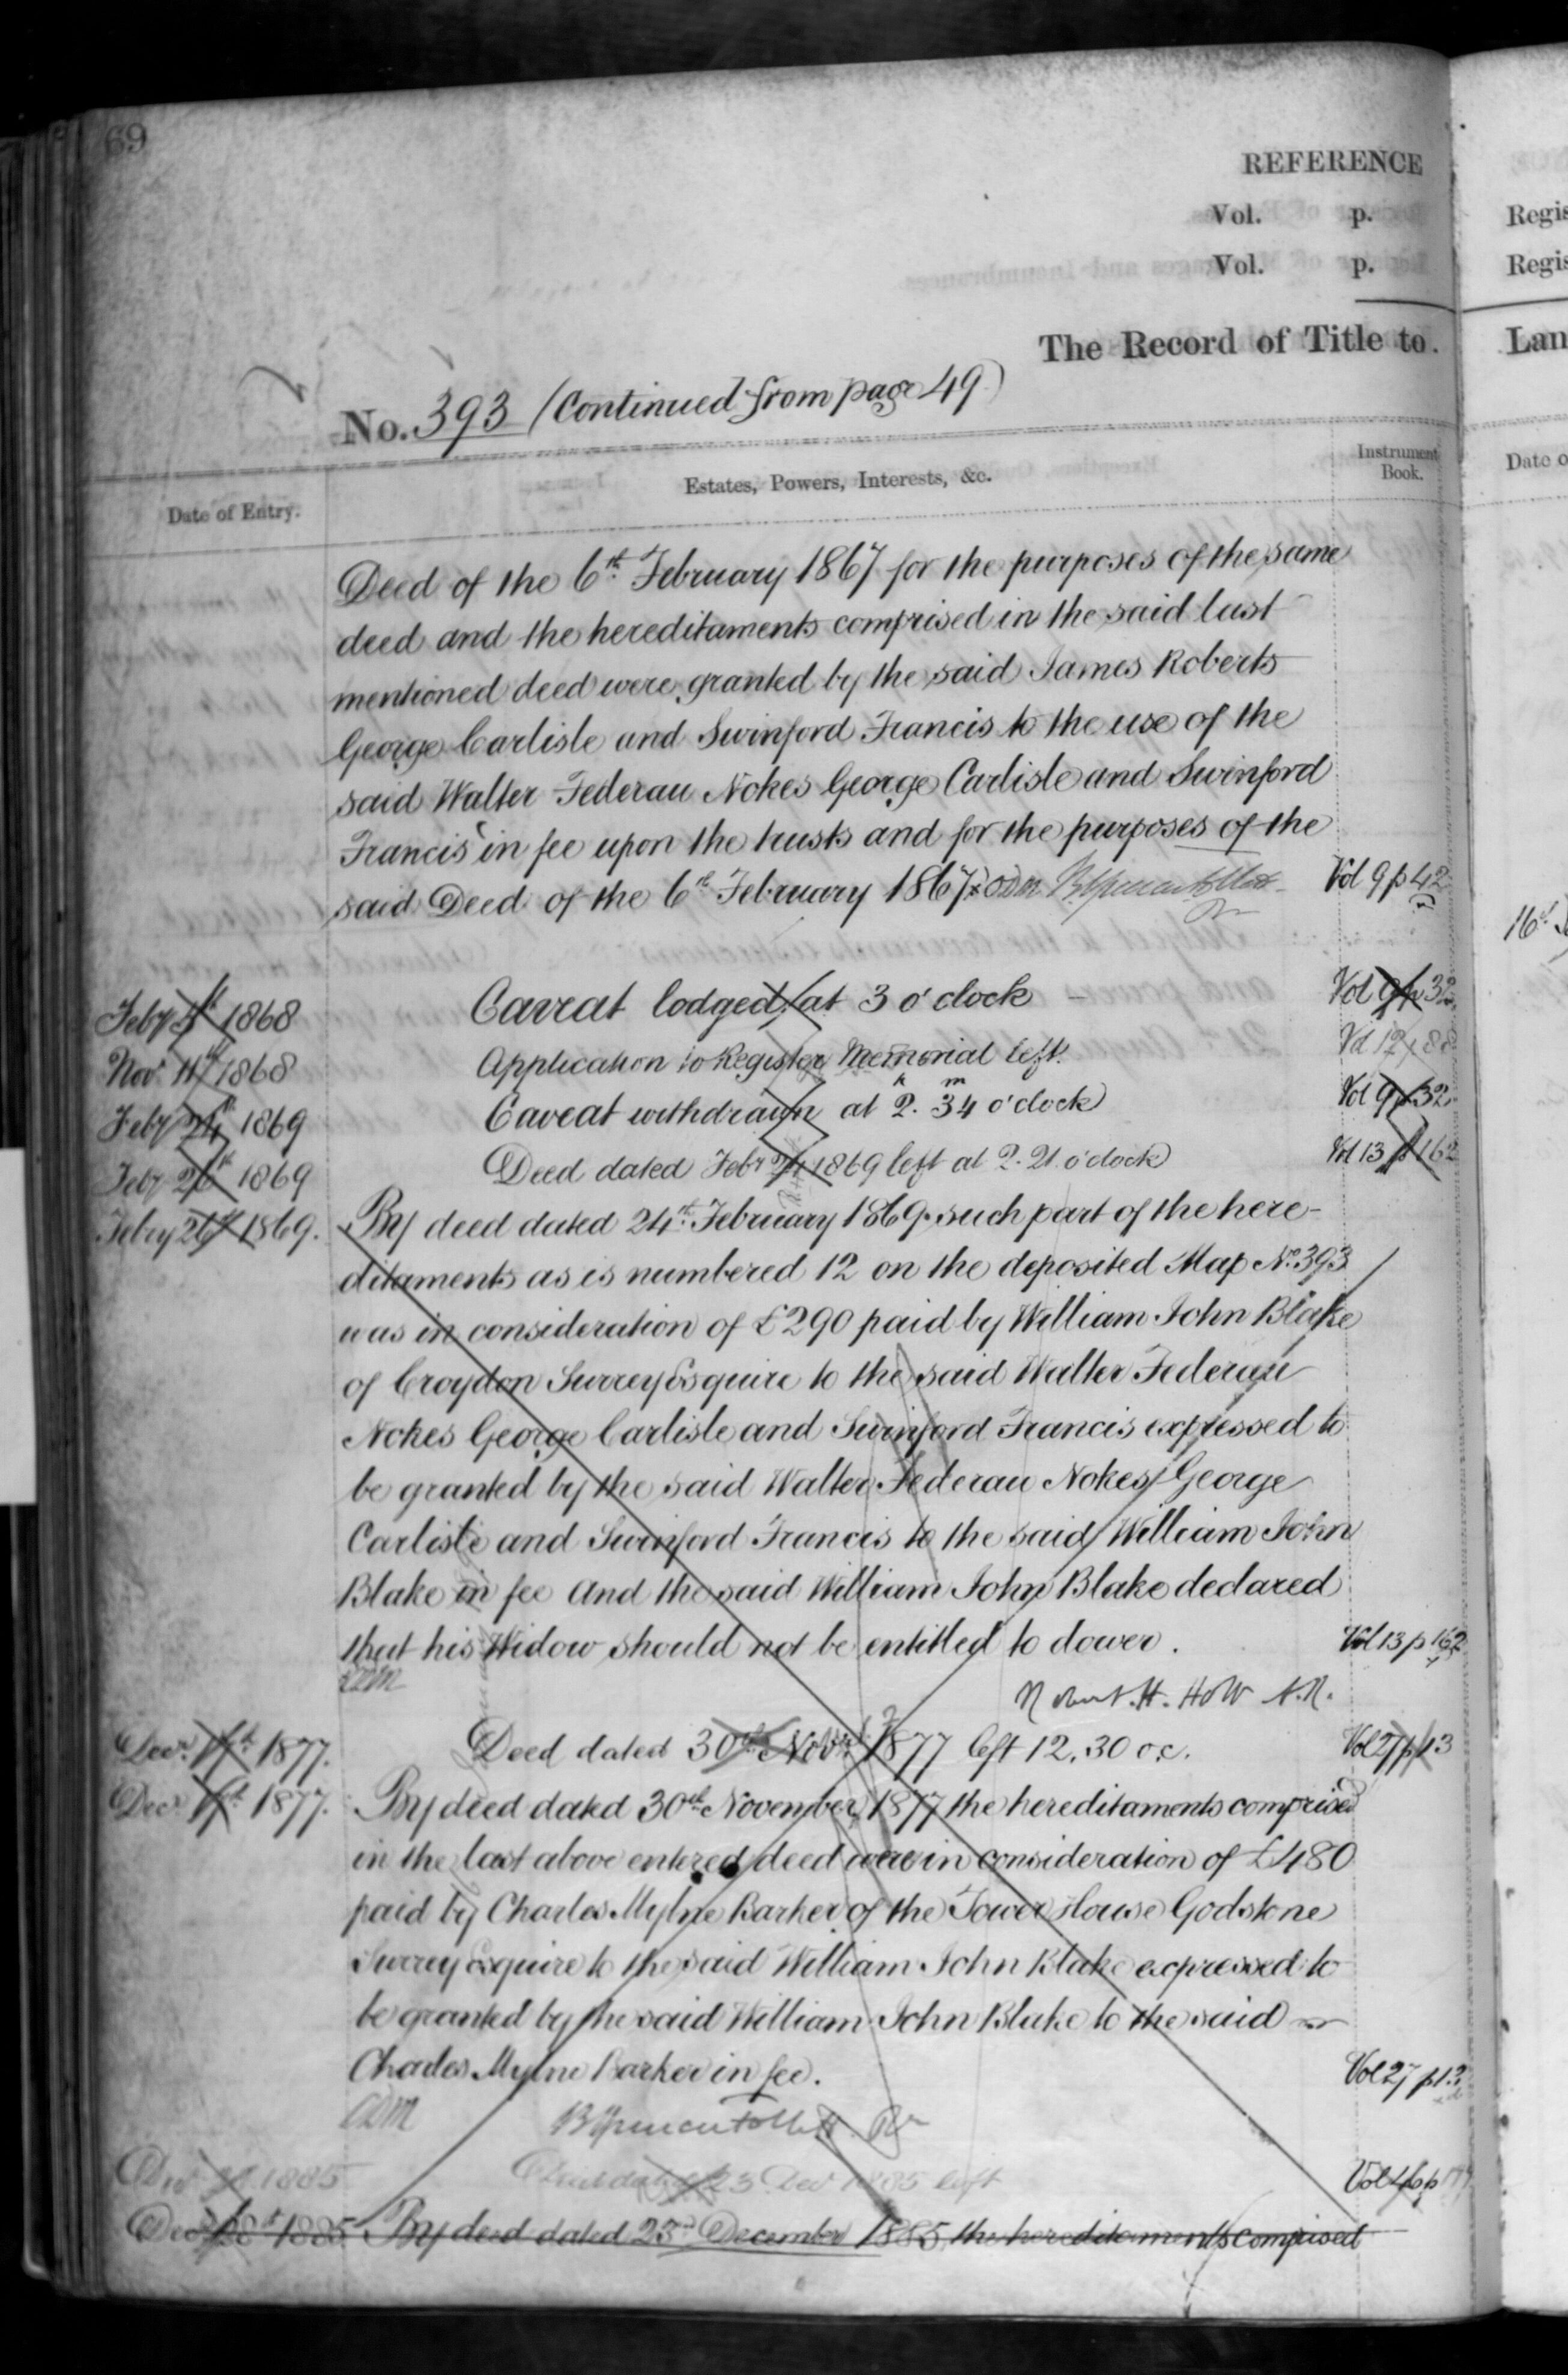 69
REFERENCE
Vol. p.
Vol. p.
The Record of Title to
No. 393 (Continued from page 49)
Date of Entry.
Estates, Powers, Interests, &c.
Instrument Book.
Deed of the 6th February 1867 for the purposes of the same
deed and the hereditaments comprised in the said last
mentioned deed were granted by the said James Roberts
George Carlisle and Swinford Francis to the use of the
said Walter Federau Nokes George Carlisle and Swinford
Francis in fee upon the trusts and for the purposes of the
said Deed of the 6th February 1867 Vol 9 p 42
Feby 1868 Caveat lodged at 3 o'clock Vol 9 p 32
Nov. 11th 1868 Application to Register Memorial left. Vol 12 p 88
Feby 24th 1869 Caveat withdrawn at 2h. 34m o'clock Vol 9 p 32
Feby 26th 1869 Deed dated Feby 24 1869 left at 2.21 o'clock Vol 13 p 162
Febry 26th 1869. By deed dated 24th February 1869 such part of the here-
ditaments as is numbered 12 on the deposited Map No. 393
was in consideration of £290 paid by William John Blake
of Croydon Surrey Esquire to the said Walter Federau
Nokes George Carlisle and Swinford Francis expressed to
be granted by the said Walter Federau Nokes George
Carlisle and Swinford Francis to the said William John
Blake in fee And the said William John Blake declared
that his Widow should not be entitled to dower. Vol 13 p 162
Robert. H. Holt A.R.
Decr. 1877. Deed dated 30th Novr. 1877 left 12.30 oc. Vol 27 p 13
Decr. 1877. By deed dated 30th November 1877 the hereditaments comprised
in the last above entered deed were in consideration of £480
paid by Charles Mylne Barker of the Tower House Godstone
Surrey Esquire to the said William John Blake expressed to
be granted by the said William John Blake to the said
Charles Mylne Barker in fee. Vol 27 p 13
ADM
1885 Deed dated 23 Dec 1885 left Vol 46 p
Dec 1885 By deed dated 23rd December 1885 the hereditaments comprised
Regis
Regis
Lan
Date o
16th